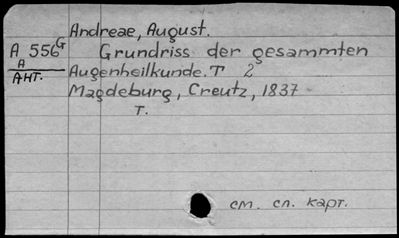 Andreae, August.
A 556G Grundriss der gesammten
A
АНТ. Augenheilkunde. T 2
Magdeburg, Creutz, 1837
T.
см. сл. карт.